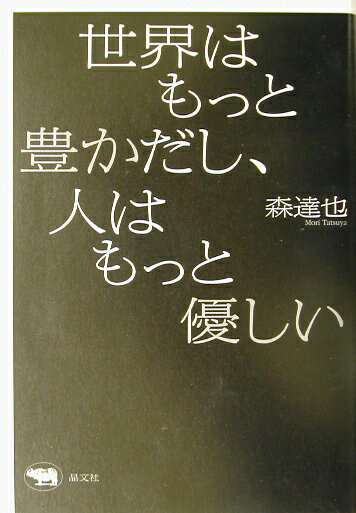 世界は
もっと
豊かだし、
人は
もっと
優しい
森達也
Mori Tatsuya
晶文社